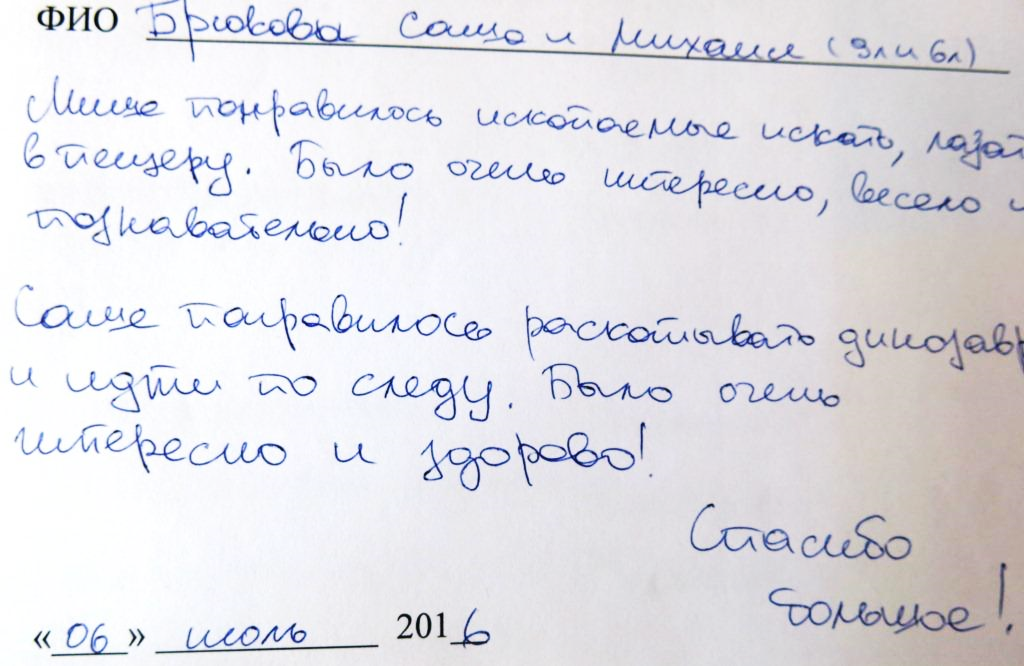 ФИО Брюковы Саша и Михаил (9л и 6л)
Мише понравилось ископаемые искать, лазать
в пещеру. Было очень интересно, весело и
познавательно!
Саше понравилось раскапывать динозавр
и идти по следу. Было очень
интересно и здорово!
Спасибо
большое!
«06» июль 2016